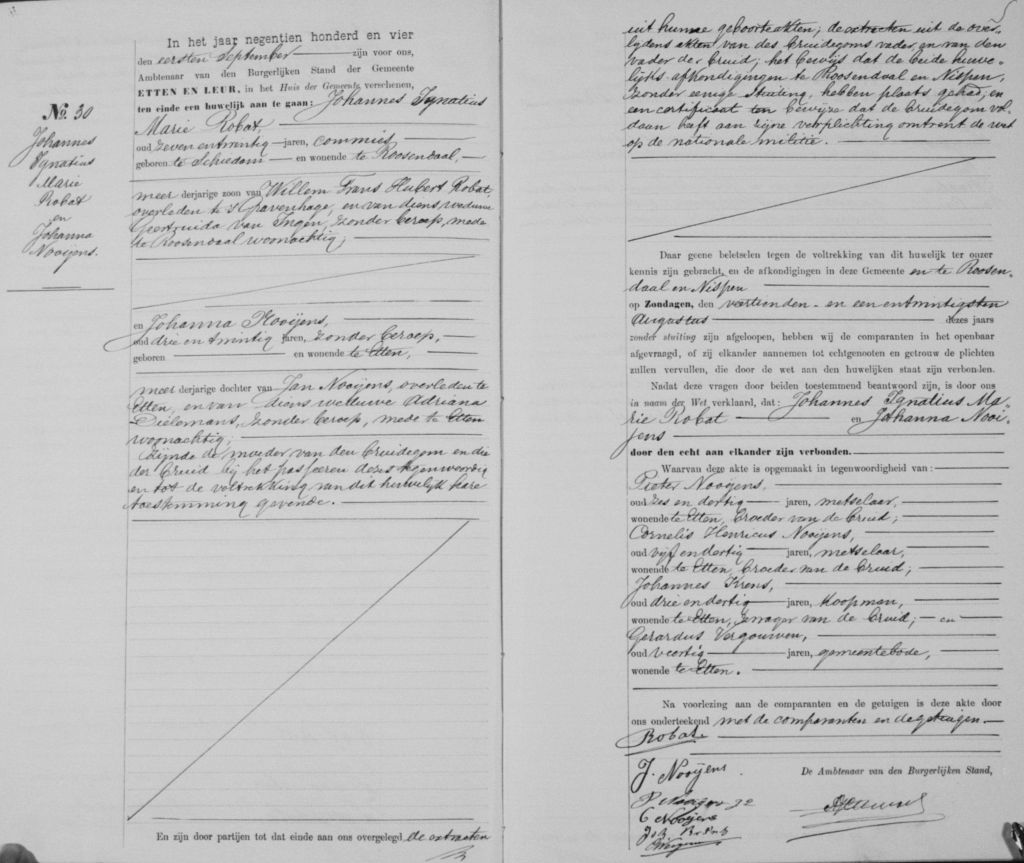 No. 30
Johannes
Ignatius
Marie
Robat
en
Johanna
Nooijens.
In het jaar negentien honderd en vier
den eersten September zijn voor ons,
Ambtenaar van den Burgerlijken Stand der Gemeente
ETTEN EN LEUR, in het Huis der Gemeente verschenen,
ten einde een huwelijk aan te gaan: Johannes Ignatius
Marie Robat,
oud zeven en twintig jaren, commies
geboren te Schiedam en wonende te Roosendaal,
meer derjarige zoon van Willem Frans Hubert Robat
overleden te 's Gravenhage, en van diens weduwe
Geertruida van Ingen, zonder beroep, mede
te Roosendaal woonachtig;
en Johanna Nooijens,
oud drie en twintig jaren, zonder beroep,
geboren en wonende te Etten,
meer derjarige dochter van Jan Nooijens, overleden te
Etten, en van diens weduwe Adriana
Dielemans, zonder beroep, mede te Etten
woonachtig;
Zijnde de moeder van den bruidegom en die
der bruid bij het passeren dezes tegenwoordig
en tot de voltrekking van dit huwelijk hare
toestemming gevende.
En zijn door partijen tot dat einde aan ons overgelegd de extracten
uit hunne geboorteakten; de extracten uit de over-
lijdens akten van des bruidegoms vader en van den
vader der bruid; het bewijs dat de beide huwe-
lijks-afkondigingen te Roosendaal en Nispen,
zonder eenige stuiting, hebben plaats gehad; en
een certificaat ten bewijze dat de bruidegom vol-
daan heeft aan zijne verplichting omtrent de wet
op de nationale militie.
Daar geene beletselen tegen de voltrekking van dit huwelijk ter onzer
kennis zijn gebracht, en de afkondigingen in deze Gemeente en te Roosen-
daal en Nispen
op Zondagen, den veertienden en een en twintigsten
Augustus dezes jaars
zonder stuiting zijn afgeloopen, hebben wij de comparanten in het openbaar
afgevraagd, of zij elkander aannemen tot echtgenooten en getrouw de plichten
zullen vervullen, die door de wet aan den huwelijken staat zijn verbonden.
Nadat deze vragen door beiden toestemmend beantwoord zijn, is door ons
in naam der Wet verklaard, dat: Johannes Ignatius Ma-
rie Robat en Johanna Nooi-
jens
door den echt aan elkander zijn verbonden.
Waarvan deze akte is opgemaakt in tegenwoordigheid van:
Pieter Nooyens,
oud zes en dertig jaren, metselaar,
wonende te Etten, broeder van de bruid;
Cornelis Henricus Nooijens,
oud vijf en dertig jaren, metselaar,
wonende te Etten, broeder van de bruid;
Johannes Krens,
oud drie en dertig jaren, koopman,
wonende te Etten, zwager van de bruid; en
Gerardus Vergouwen,
oud veertig jaren, gemeentebode,
wonende te Etten.
Na voorlezing aan de comparanten en de getuigen is deze akte door
ons onderteekend met de comparanten en de getuigen
Robat
J. Nooijens
C Nooijens
De Ambtenaar van den Burgerlijken Stand,